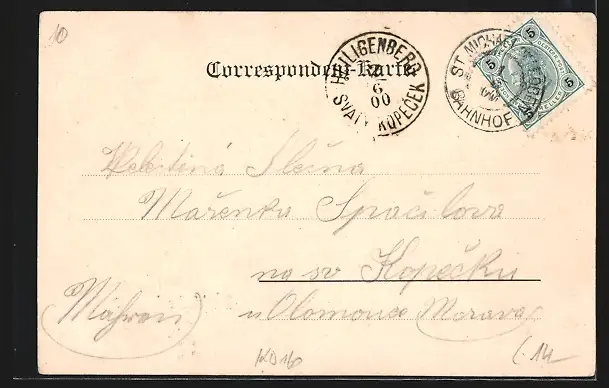 10
Correspondenz-Karte
HEILIGENBERG
6
00
SVATÝ KOPEČEK
ST. MICHAEL
BAHNHOF
5 5
5 5
HELLER
Velectěná Slečna
Mařenka Spačilova
na sv Kopečku
(Mähren) u Olomouce Morava
KD16
(.14